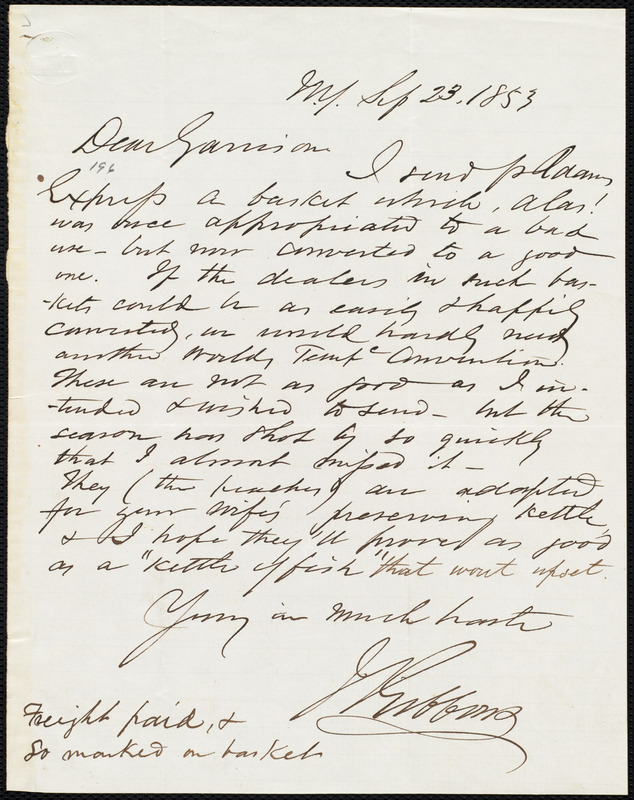 N.Y. Sep 23. 1853
Dear Garrison
196
I send pr Adams
Express a basket which, alas!
was once appropriated to a bad
use - but now converted to a good
one. If the dealers in such bas-
-kets could be as easily & happily
converted, we would hardly need
another Worlds Tempce Convention.
These are not as good as I in-
-tended & wished to send - but the
season has shot by so quickly
that I almost missed it -
They (the peaches) are adapted
for your wife's preserving kettle,
& I hope they'll prove as good
as a "kettle of fish" that wont upset.
Yours in much haste
J S Gibbons
Freight paid, &
so marked on basket